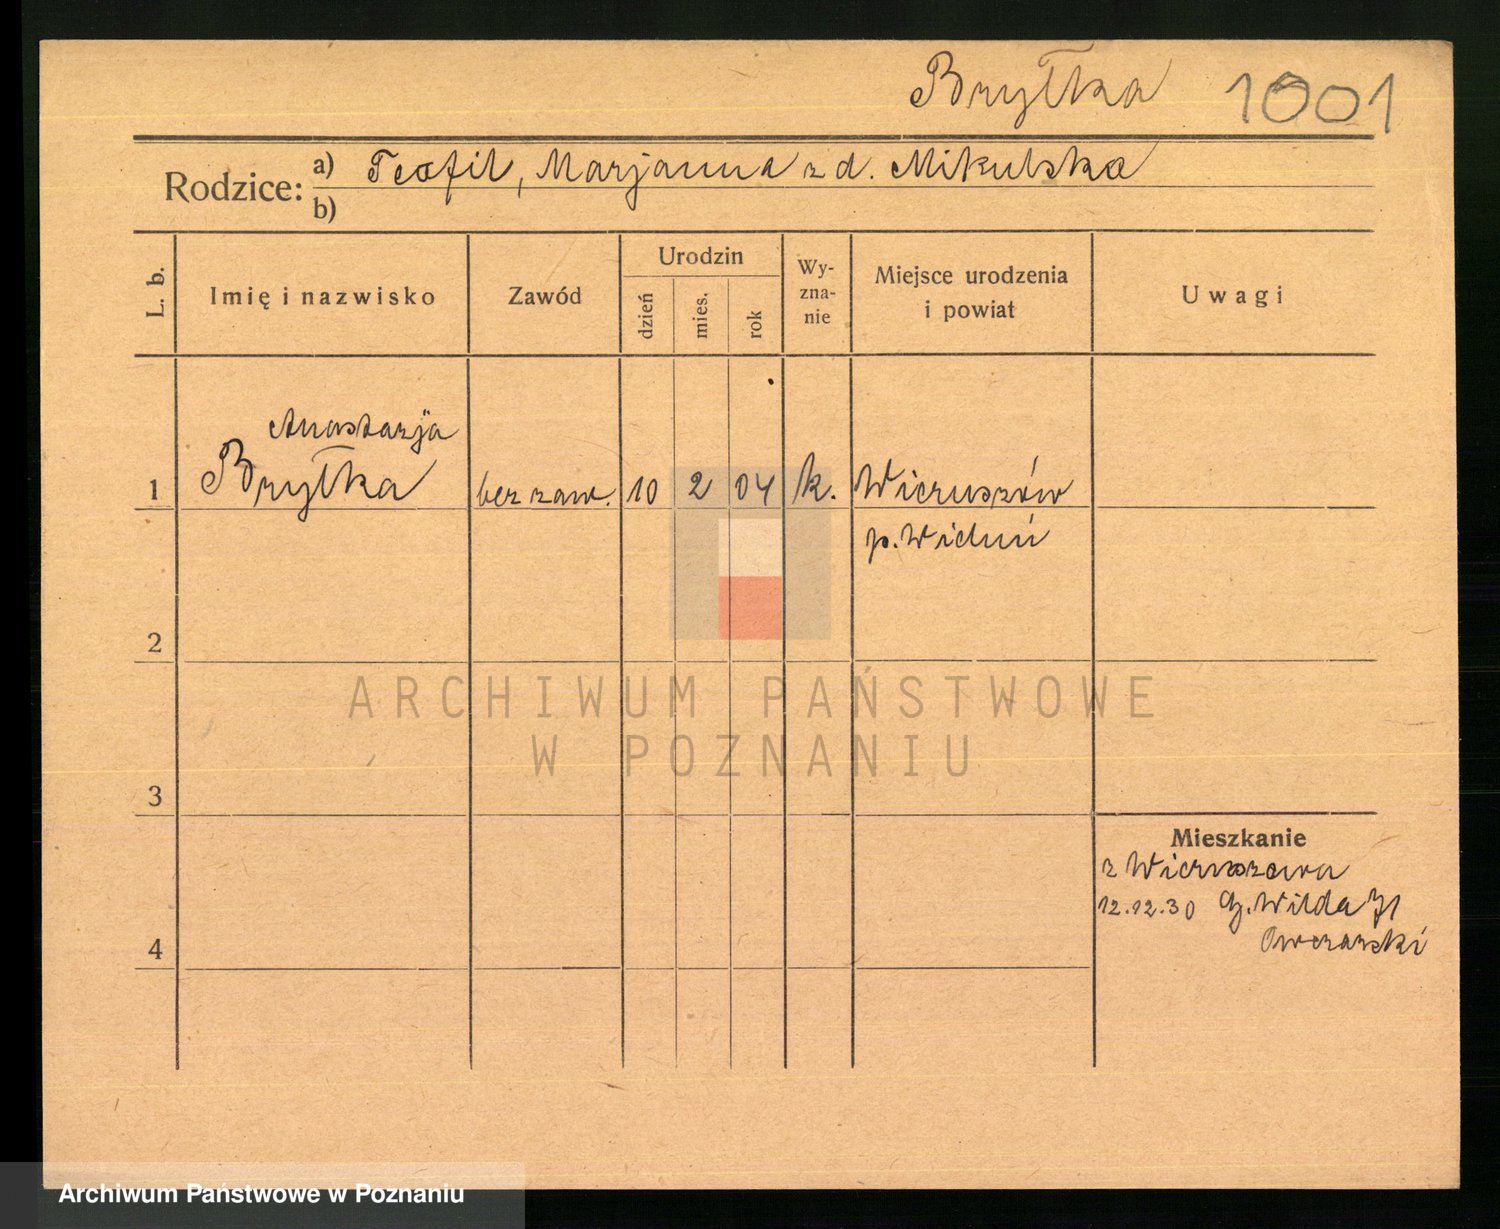 Bryłka 1001
Rodzice: a) Teofil, Marjanna z d. Mikulska
b)
L. b.
Imię i nazwisko
Zawód
Urodzin
dzień
mies.
rok
Wy-
zna-
nie
Miejsce urodzenia
i powiat
Uwagi
Anastazja
1 Bryłka bez zaw. 10 2 04 k. Wieruszów
p. Wieluń
2
ARCHIWUM PAŃSTWOWE
W POZNANIU
3
Mieszkanie
z Wieruszowa
12.12.30 G. Wilda 71
4
Owczarski
Archiwum Państwowe w Poznaniu